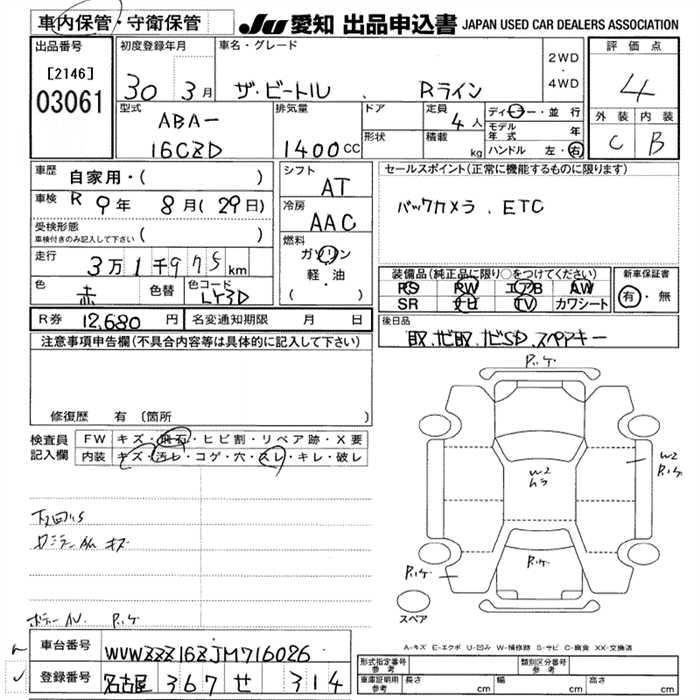 車内保管・守衛保管
JU 愛知 出品申込書 JAPAN USED CAR DEALERS ASSOCIATION
出品番号
[2146]
03061
初度登録年月
30 3月
車名・グレード
ザ・ビートル、 Rライン
2WD
・
4WD
評価点
4
外装 内装
C B
型式
ABA-
16CZD
排気量
1400cc
ドア
形状
定員 4人
積載 kg
ディーラー・並行
モデル年式 年
ハンドル 左・右
車歴
自家用・( )
車検 R 9年 8月(29日)
受検形態
車検付きのみ記入して下さい ( )
走行 3万1千975km
色 赤
色替
色コード LY3D
シフト
AT
冷房
AAC
燃料
ガソリン
軽・油
( )
セールスポイント(正常に機能するものに限ります)
バックカメラ、ETC
装備品(純正品に限り○をつけてください)
PS PW エアB AW
SR ナビ TV カワシート
新車保証書
有・無
R券 12,680円
名変通知期限 月 日
後日品
取、ナビ取、ナビSD、スペアキー
注意事項申告欄(不具合内容等は具体的に記入して下さい)
修復歴 有 〔箇所 〕
検査員
記入欄
FW キズ・飛石・ヒビ割・リペア跡・X要
内装 キズ・汚レ・コゲ・穴・スレ・キレ・破レ
P.レケ
W2
W2
P.レケ
P.レケ
P.レケ
スペア
A-キズ E-エクボ U-凹み W-補修跡 S-サビ C-腐食 XX-交換済
車台番号
WVWZZZ16ZJM716026
登録番号
名古屋 367 せ 314
形式指定番号
参考
類別区分番号
参考
車庫証明用
参考
長さ cm
幅 cm
高さ cm